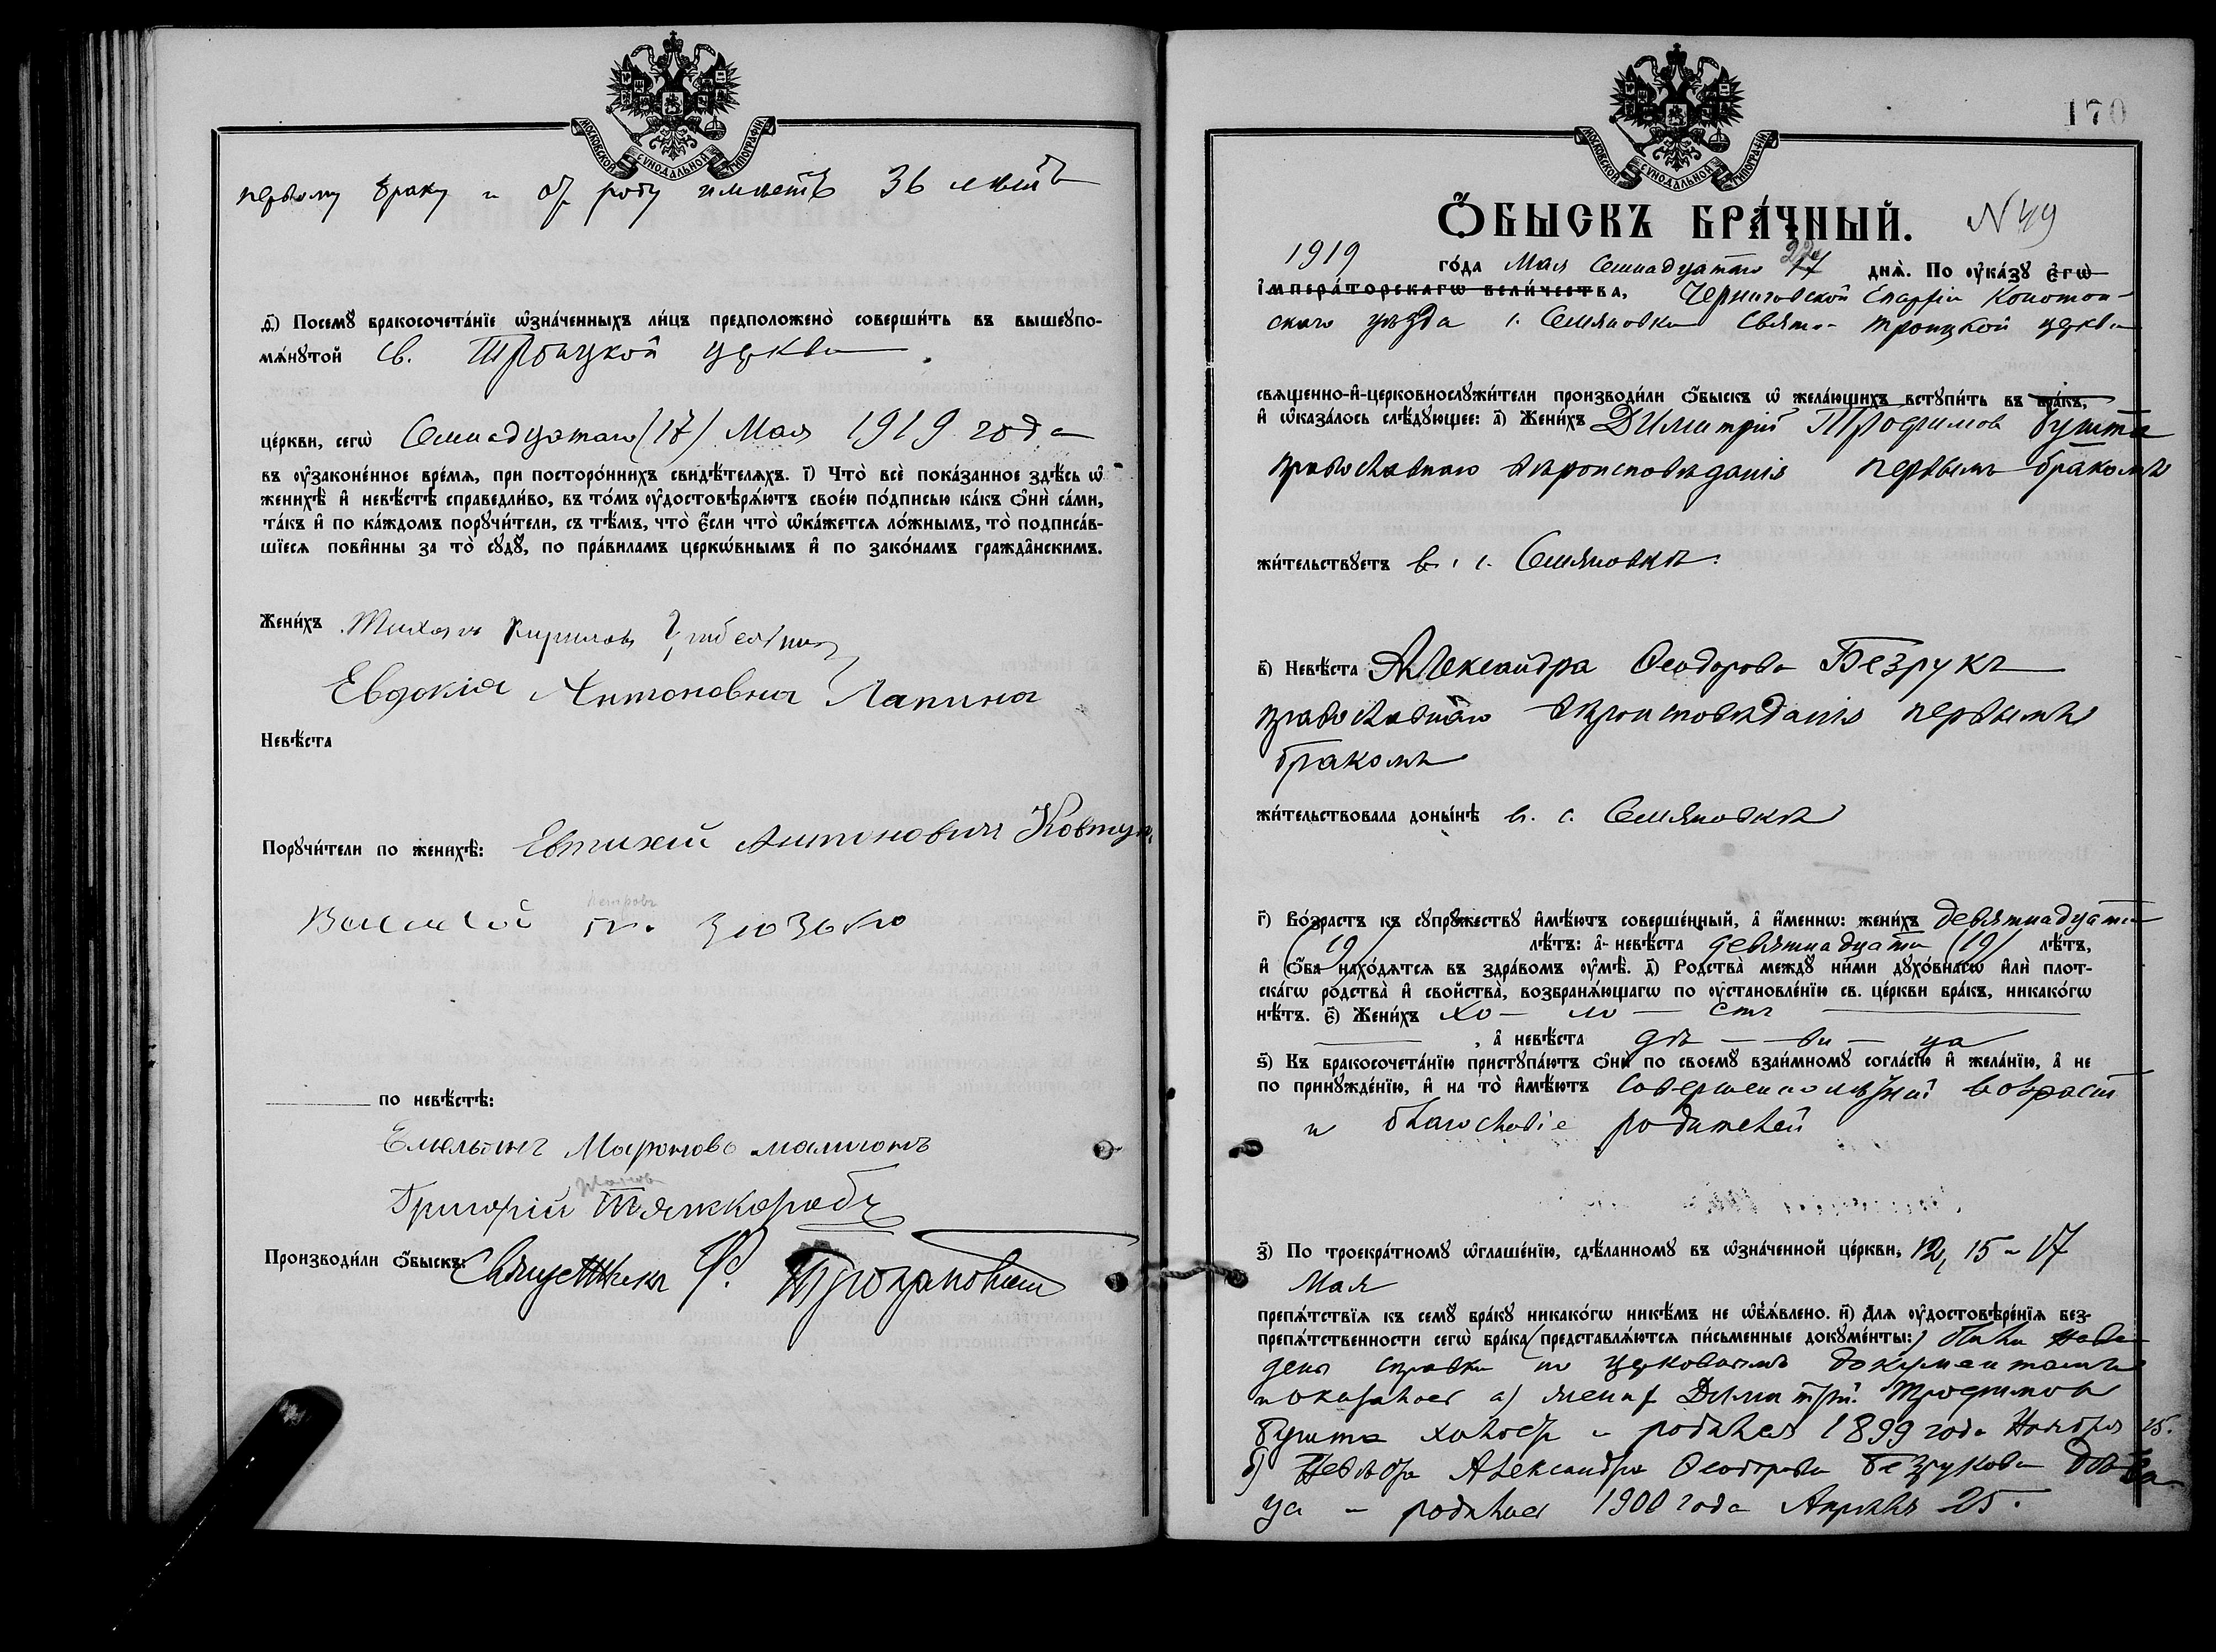 МОСКОВСКОЙ СѴНОДАЛЬНОЙ ТИПОГРАФІИ
первому браку и отъ роду имѣетъ 36 лѣтъ
д҃) Посемꙋ̀ бракосочета́нїе ѡ҆зна́ченныхъ ли́цъ предположено̀ соверши́ть въ вышеꙋпо-
мѧ́нꙋтой св. Троицкой церкви
це́ркви, сегѡ̀ Семнадцатаго (17) Мая 1919 года
въ ᲂу҆зако́ненное вре́мѧ, при посторо́ннихъ свидѣ́телѧхъ. і҃) Что̀ всѐ пока́занное здѣ́сь ѡ҆
женихѣ̀ и҆ невѣ́стѣ справедли́во, въ то́мъ ᲂу҆достовѣрѧ́ютъ свое́ю по́дписью ка́къ ѻ҆нѝ са́ми,
та́къ и҆ по ка́ждомъ порꙋчи́тели, съ тѣ́мъ, что̀ є҆́сли что̀ ѡ҆ка́жетсѧ ло́жнымъ, то̀ подписа́в-
шїесѧ пови́нны за то̀ сꙋдꙋ̀, по пра́виламъ церкѡ́внымъ и҆ по зако́намъ гражда́нскимъ.
Жени́хъ Кирилов
Евдокія Антоновна Лапина
Невѣ́ста
Порꙋчи́тели по женихѣ̀: Евтихій Антоновичъ Ковтун
Петровъ
Василий Зюзько
по невѣ́стѣ:
Емельянъ
Григорій Тяжкоробъ
Производи́ли ѻ҆́быскъ: Священникъ Ф.
170
МОСКОВСКОЙ СѴНОДАЛЬНОЙ ТИПОГРАФІИ
Ѻ҆́БЫСКЪ БРА́ЧНЫЙ. N 49
1919 го́да Мая Семнадцатаго 17 22 днѧ̀. По ᲂу҆ка́зꙋ є҆гѡ̀
і҆мпера́торскагѡ вели́чества, Черниговской Епархіи Конотоп-
скаго уѣзда с. Семяновки Свято-Троицкой церкви
сващенно-и҆-церковнослꙋжи́тели производи́ли ѻ҆́быскъ ѡ҆ жела́ющихъ встꙋпи́ть въ бра́къ,
и҆ ѡ҆каза́лось слѣ́дꙋющее: а҃) Жени́хъ Димитрій Трофимов Бушта
православнаго вѣроисповѣданія первымъ бракомъ
жи́тельствꙋетъ в с. Семяновкѣ.
в҃) Невѣ́ста Александра Ѳеодорова Безрукъ
православнаго вѣроисповѣданія первымъ
бракомъ
жи́тельствовала доны́нѣ в. с. Семяновкѣ
г҃) Во́зрастъ къ сꙋпрꙋ́жествꙋ и҆мѣ́ютъ соверше́нный, а҆ и҆́меннѡ: жени́хъ девятнадцати
(19) лѣ́тъ: а҆ невѣ́ста девятнадцати (19) лѣ́тъ,
и҆ ѻ҆́ба нахо́дѧтсѧ въ здра́вомъ ᲂу҆мѣ̀. д҃) Родства̀ междꙋ̀ ни́ми дꙋхо́внагѡ и҆лѝ плот-
ска́гѡ родства̀ и҆ сво́йства̀, возбранѧ́ющагѡ по ᲂу҆становле́нїю св. це́ркви бра́къ, никако́гѡ
нѣ́тъ. є҃) Жени́хъ хо — ло — стъ
, а҆ невѣ́ста дѣ — ви — ца
ѕ҃) Къ бракосочета́нїю пристꙋпа́ютъ ѻ҆нѝ по своемꙋ̀ взаи́мномꙋ согла́сїю и҆ жела́нїю, а҆ не
по принꙋжде́нїю, и҆ на то̀ и҆мѣ́ютъ совершеннолѣтній возрастъ
и благословіе родителей
з҃) По троекра́тномꙋ ѡ҆глаше́нїю, сдѣ́ланномꙋ въ ѡ҆зна́ченной це́ркви, 12, 15 и 17
Мая
препѧ́тствїѧ къ семꙋ̀ бра́кꙋ никако́гѡ никѣ́мъ не ѡ҆б̾ѧ́влено. и҃) Длѧ ᲂу҆достовѣре́нїѧ без-
препѧ́тственности сегѡ̀ бра́ка (представлѧ́ютсѧ пи́сьменные докꙋме́нты:) были наве-
дены справки по церковнымъ документамъ
и оказалось а) женихъ Димитрій Трофимовъ
Бушта холостъ и родился 1899 года Ноября 25.
б) Невѣста Александра Ѳеодорова Безрукова дѣви
ца и родилась 1900 года Апрѣля 25.